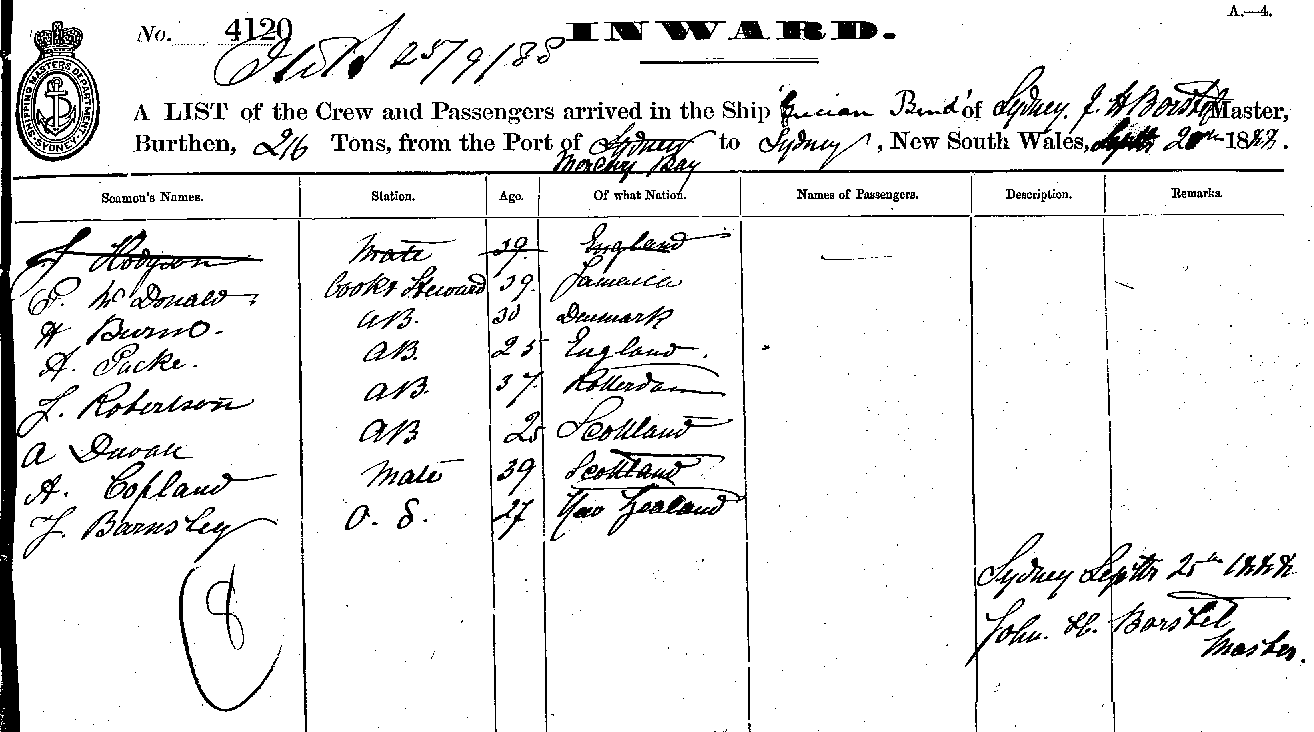 A.—4.
No. 4120 INWARD.
25/9/88
SHIPPING MASTERS DEPARTMENT SYDNEY
A LIST of the Crew and Passengers arrived in the Ship of Sydney, J. H Borstel Master,
Burthen, 216 Tons, from the Port of Sydney to Sydney, New South Wales, Septr 1888.
Mercury Bay
Seamen's Names. Station. Age. Of what Nation. Names of Passengers. Description. Remarks.
J Hodgson Mate 39 England
P. McDonald Cook & Steward 39. Jamaica
H Burns. AB. 30 Denmark
A. Packe. AB. 25 England.
J. Robertson AB. 37 Rotterdam
A AB 25 Scotland
A. Copland Mate 39 Scotland
J. Barnsley O. S. 27 New Zealand
8
Sydney Septr 25th 1888
John. H. Borstel
Master.